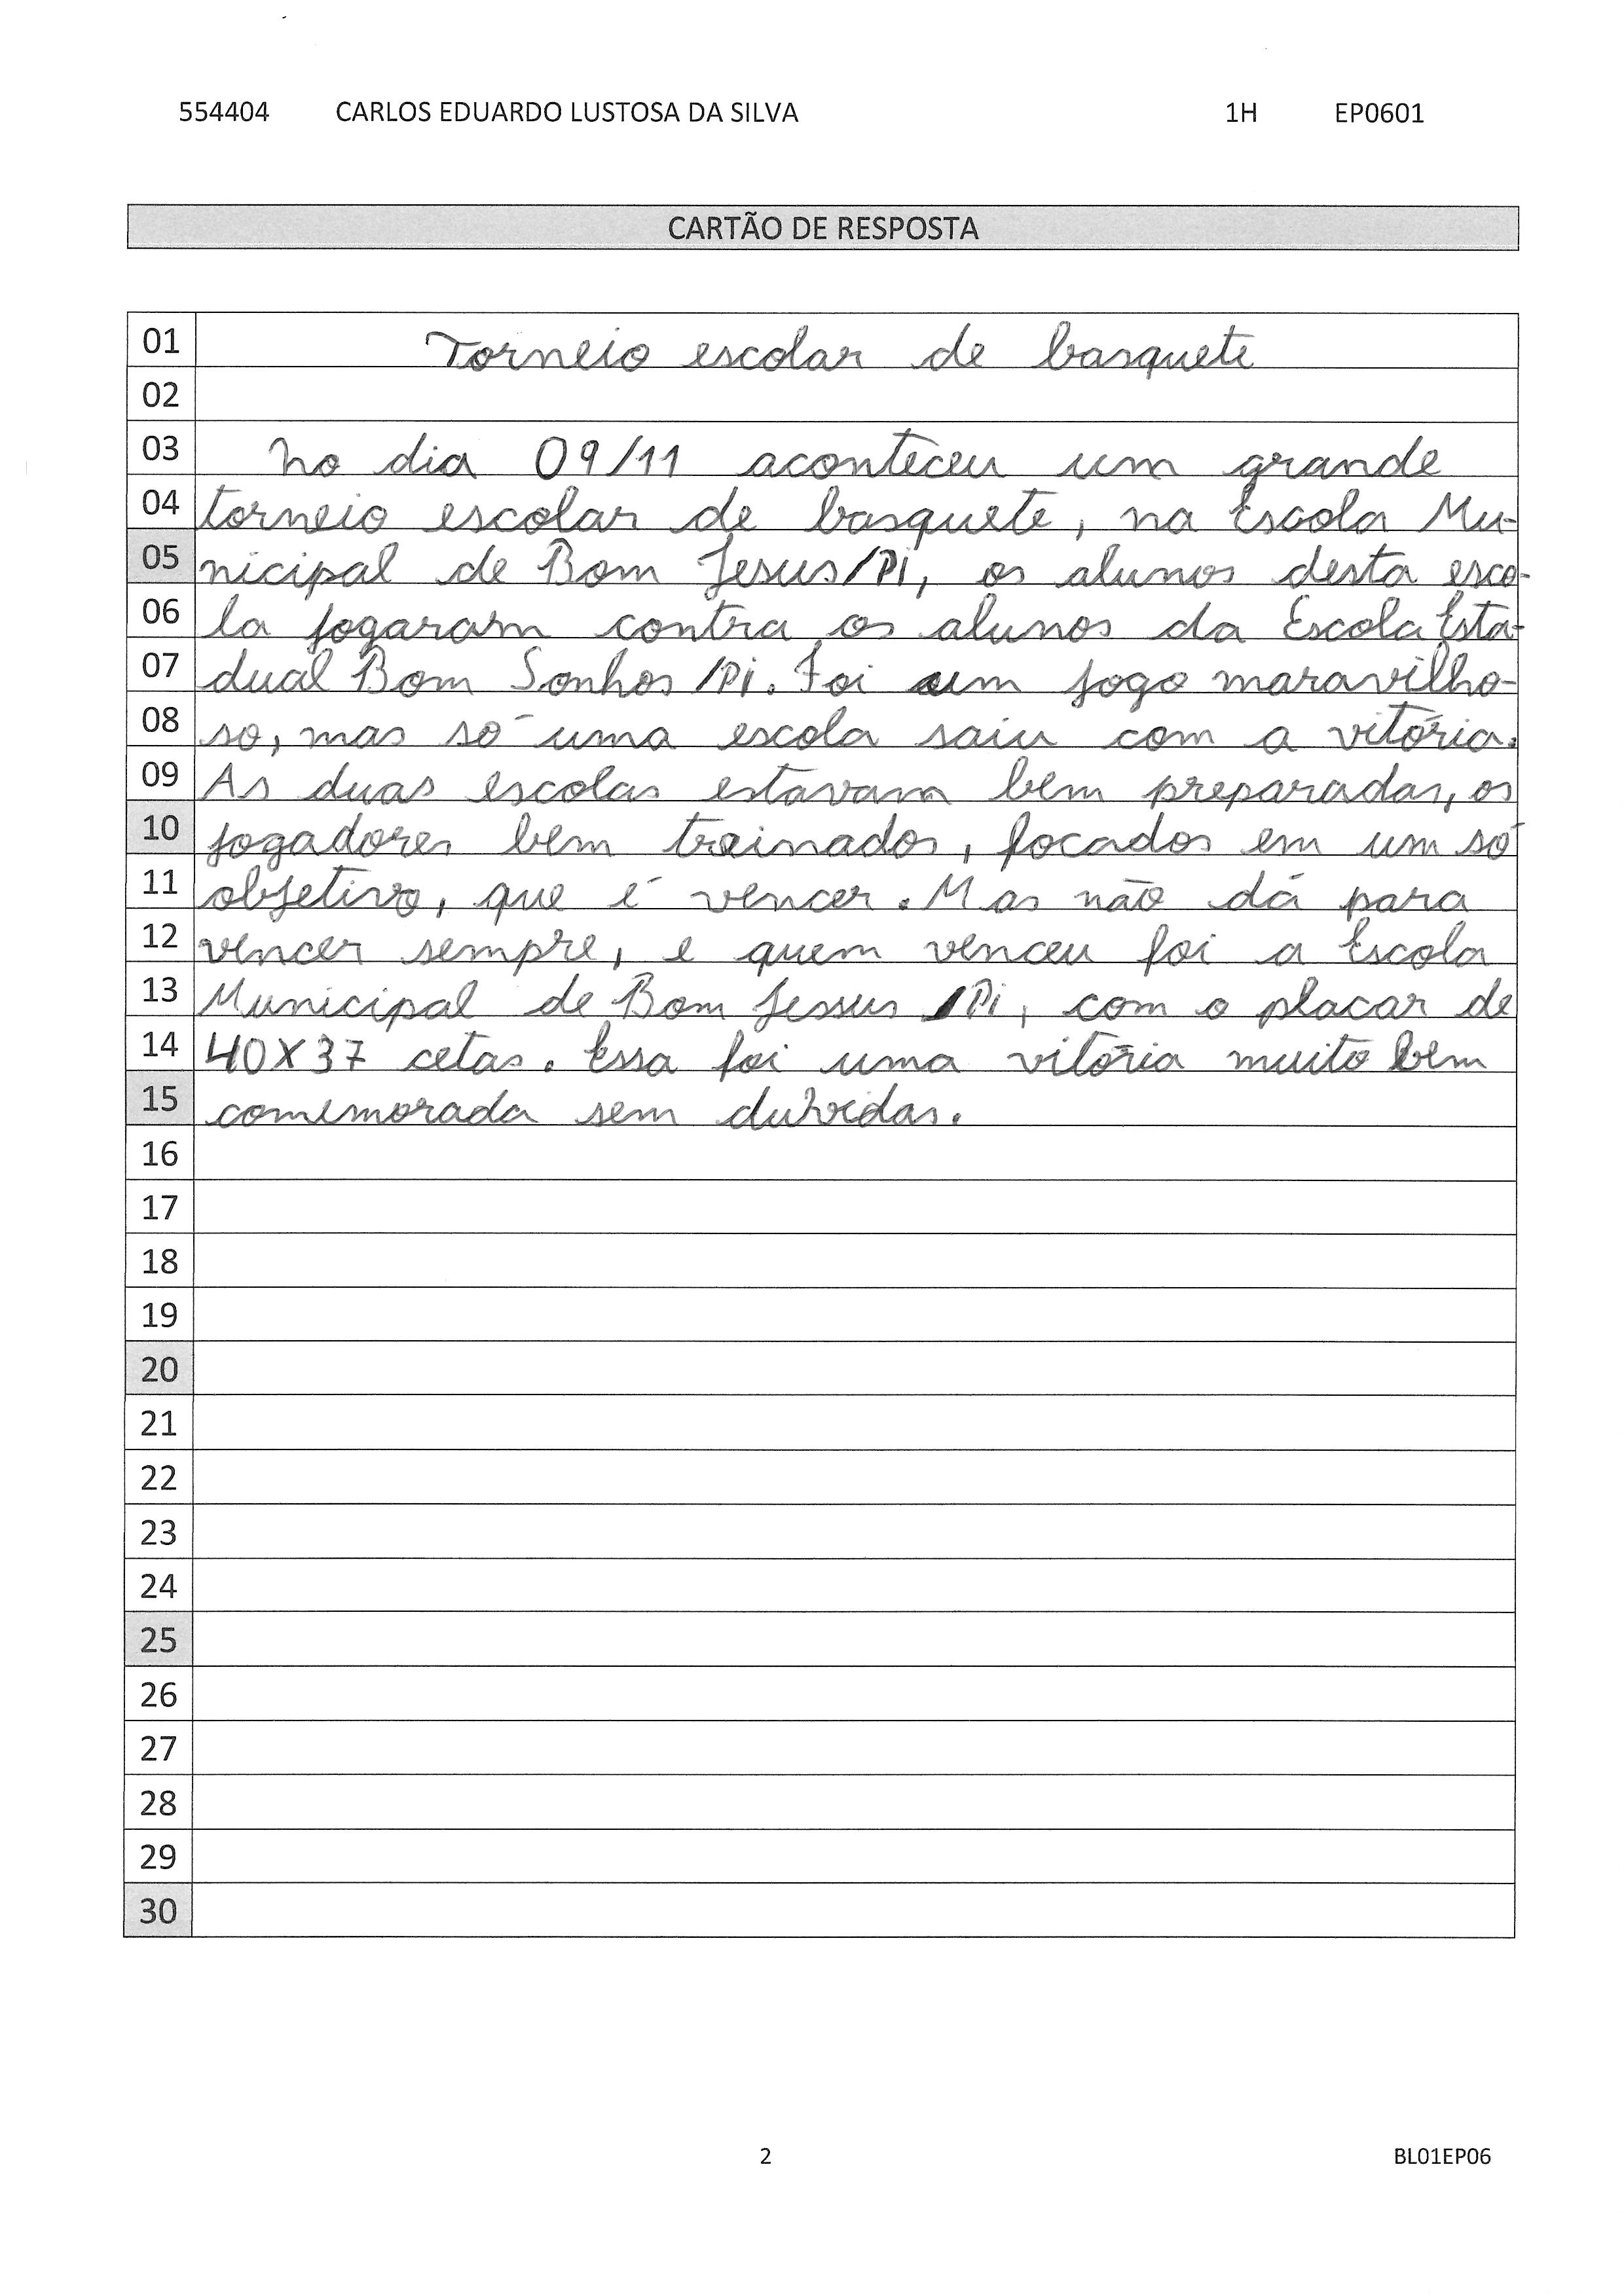 554404 CARLOS EDUARDO LUSTOSA DA SILVA 1H EP0601
CARTÃO DE RESPOSTA
01 Torneio escolar de basquete
02
03 No dia 09/11 aconteceu um grande
04 torneio escolar de basquete, na Escola Mu-
05 nicipal de Bom Jesus/Pi, os alunos desta esco-
06 la jogaram contra os alunos da Escola Esta-
07 dual Bom Sonhos /Pi. Foi um jogo maravilho-
08 so, mas só uma escola saiu com a vitória.
09 As duas escolas estavam bem preparadas, os
10 jogadores bem treinados, focados em um só
11 objetivo, que é vencer. Mas não dá para
12 vencer sempre, e quem venceu foi a Escola
13 Municipal de Bom Jessus /Pi, com o placar de
14 40X37 cetas. Essa foi uma vitória muito bem
15 comemorada sem duvidas.
16
17
18
19
20
21
22
23
24
25
26
27
28
29
30
2 BL01EP06